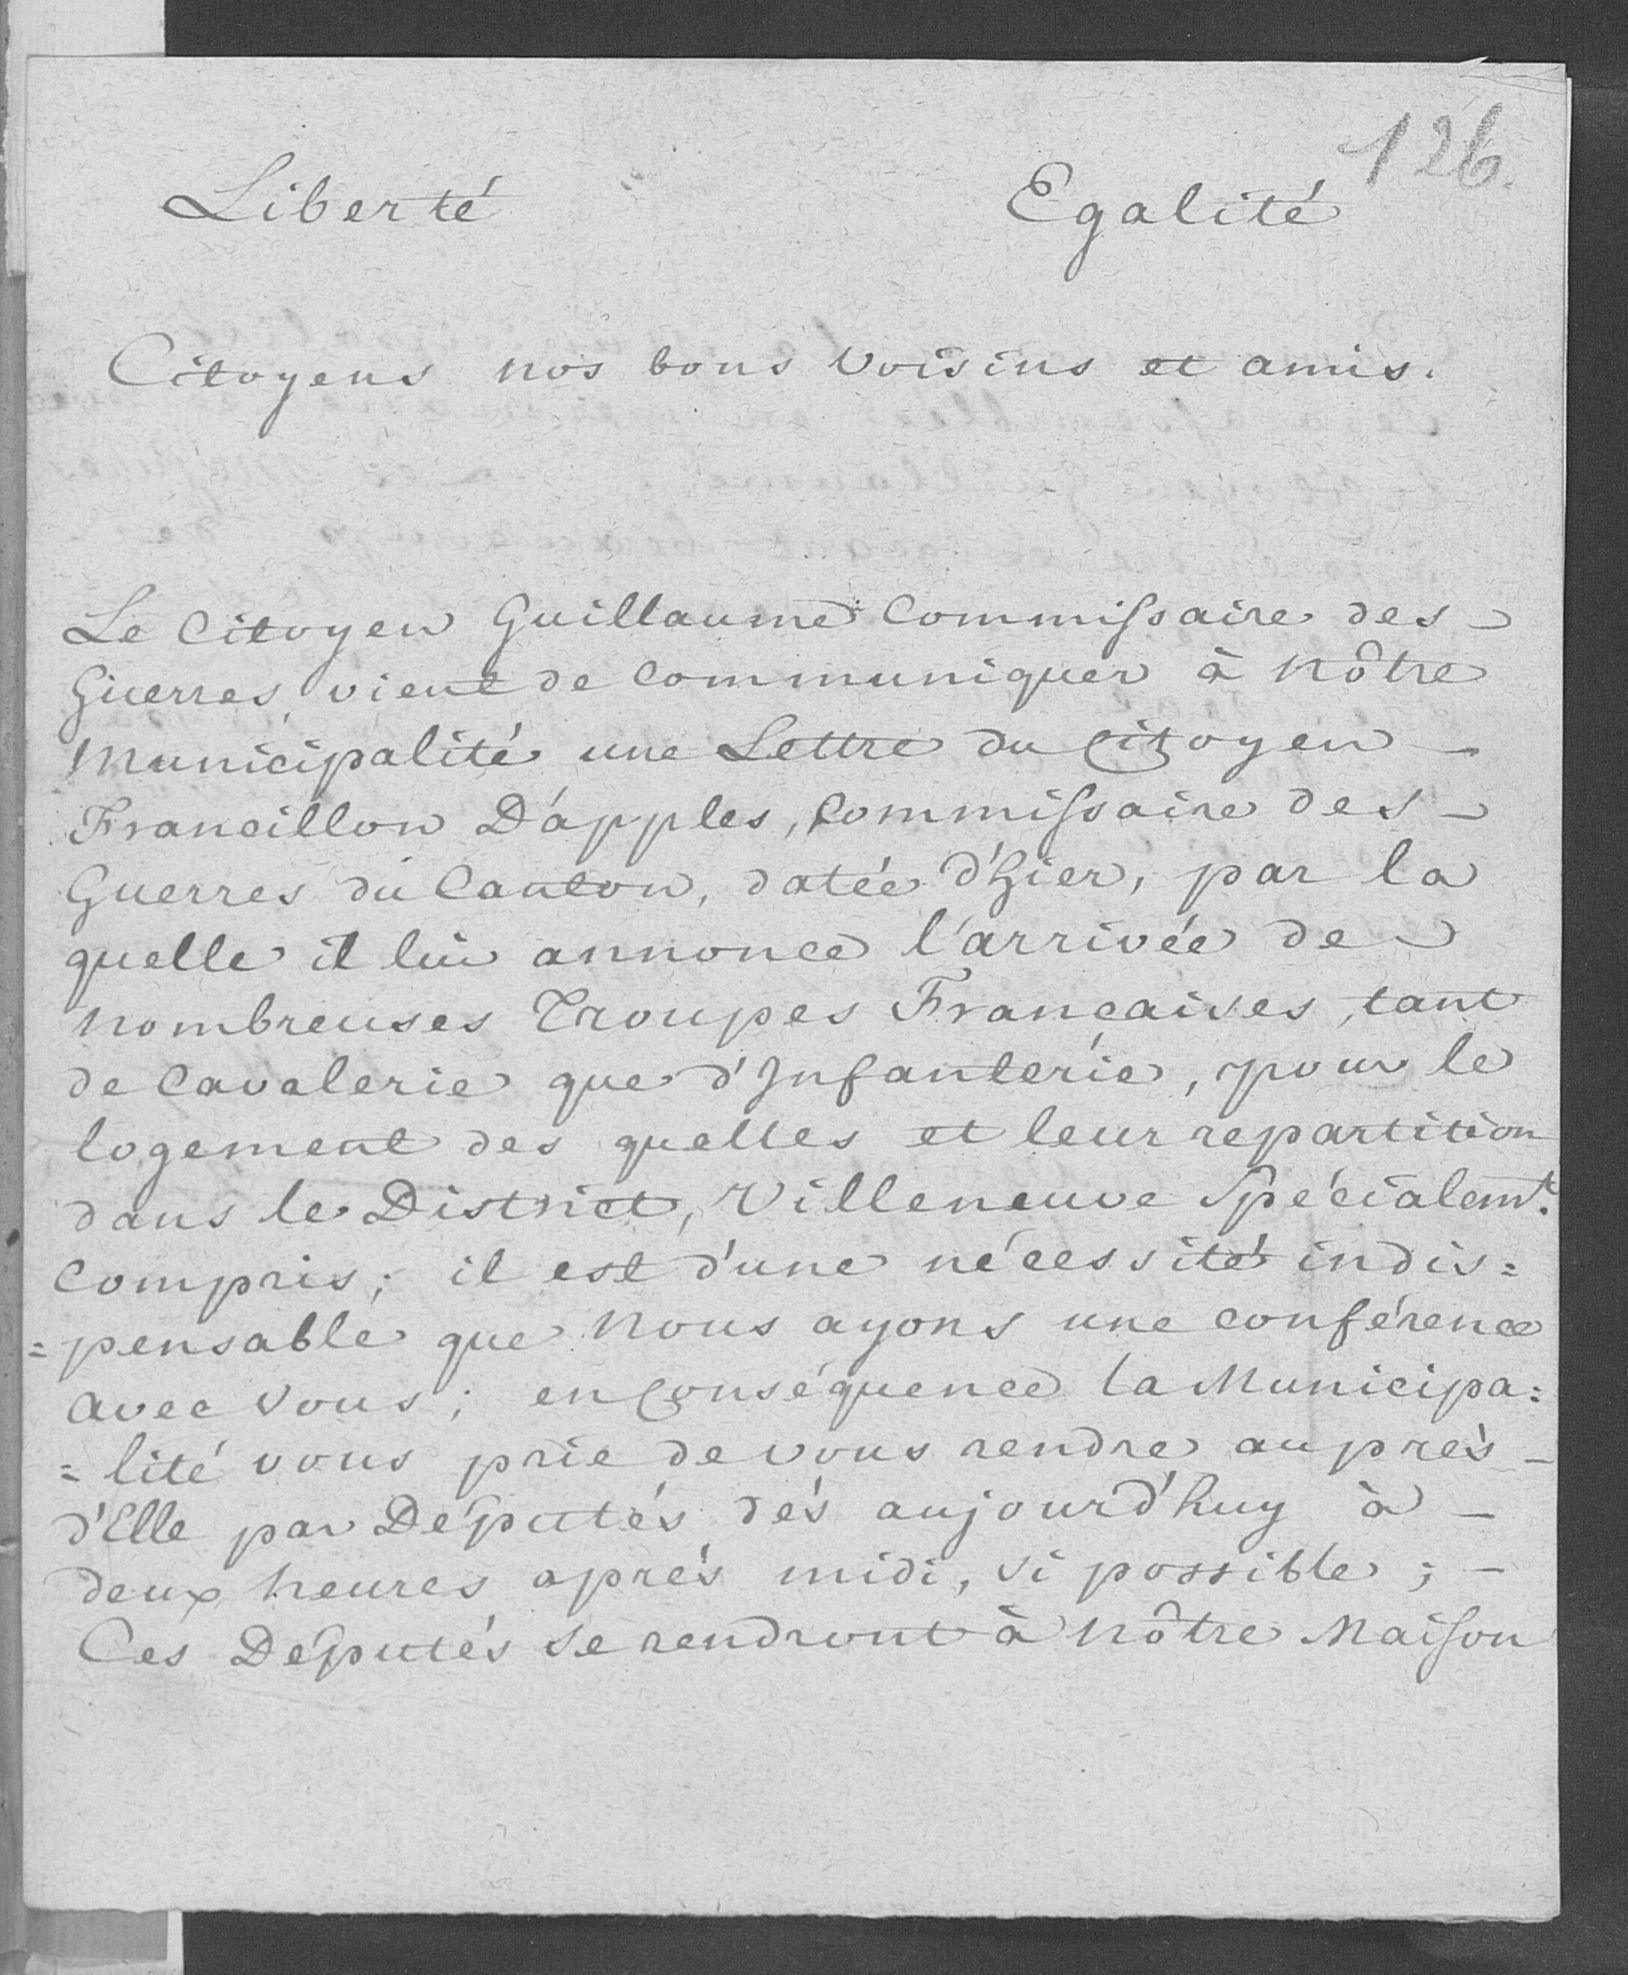 126.
Liberté Egalité
Citoyens nos bons voisins et amis.
Le Citoyen Guillaume Commissaire des
Guerres, vient de Communiquer à nôtre
Municipalité une Lettre du Citoyen
Francillon D'apples, Commissaire des
Guerres du Canton, datée d'hier, par la
quelle il lui annonce l'arrivée de
nombreuses Troupes Françaises, tant
de Cavalerie que d'Infanterie, pour le
logement des quelles et leur repartition
dans le District, Villeneuve Spécialemt.
Compris; il est d'une nécessité indis=
=pensable que Nous ayons une conférence
avec vous; en Conséquence la Municipa=
=lité vous prie de vous rendre auprès
d'Elle par Députés dés aujourd'huy à
deux heures aprés midi, si possible;
Ces Députés se rendront à nôtre Maison